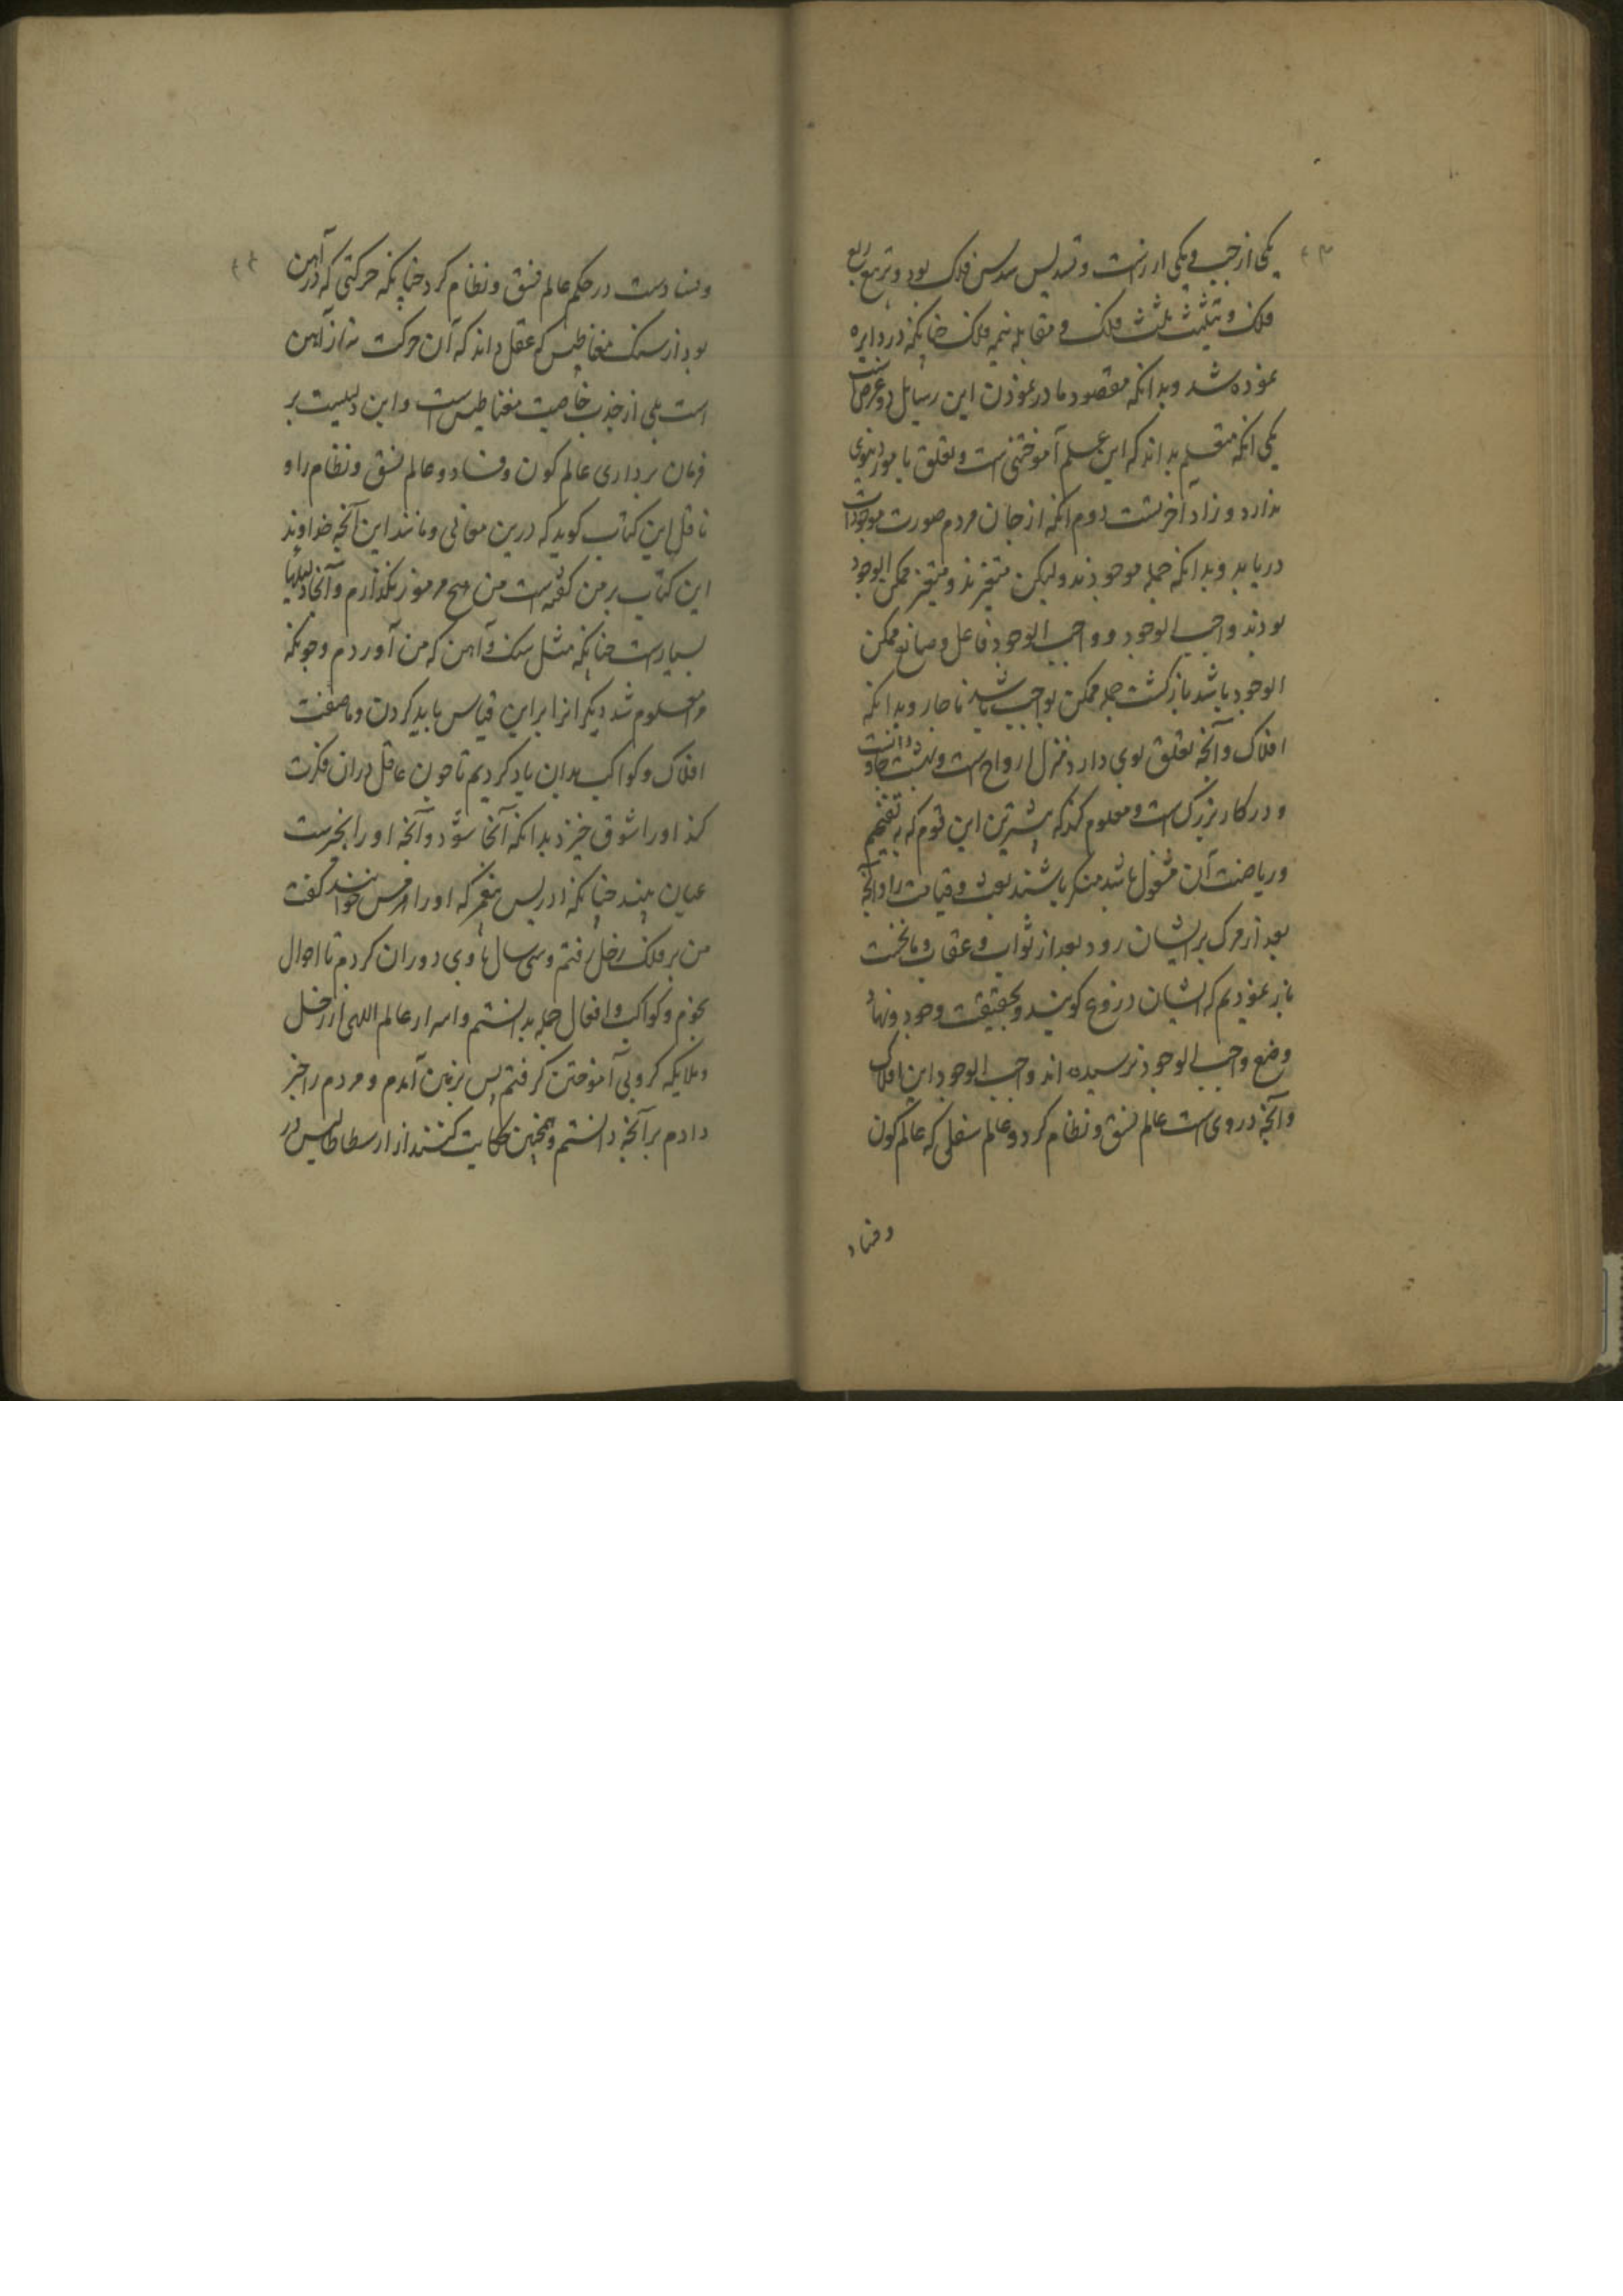 ۴۳
یکی از چپ و یکی از راست و تسدیس سدس فلک بود و تربیع ربع
فلک و تثلیث ثلث فلک و مقابله نیمه فلک چنانکه در دایره
نموده شد و بدانکه مقصود ما در نمودن این رسایل دو غرض است
یکی آنکه متعلم بداند که این علم آموختنی است و تعلق بامور دنیوی
ندارد و زاد آخرتست دوم آنکه از جان مردم صورت موجودات
دریابد و بداند که جمله موجودند ولیکن متغیرند و متغیر ممکن الوجود
بودند واجب الوجود و واجب الوجود فاعل و صانع ممکن
الوجود باشد بازگشت جمله ممکن بواجب باشد ناچار و بدانکه
افلاک و آنچه تعلق بوی دارد منزل ارواح است و بهشت جاودانست
و در کار بزرگ است و معلوم کند که بیشترین این قوم که به تنجیم
و ریاضت آن مشغول باشد منکر باشند بعث و قیامت را و آنچه
بعد از مرگ بر ایشان رود بعد از ثواب و عقاب و ما نخست
باز نمودیم که ایشان دروغ گویند و بحقیقت وجود و نهاد
وضع واجب الوجود نرسیده اند واجب الوجود این افلاک
و آنچه در وی است عالم نسق و نظام کرد و عالم سفلی که عالم کون
و فساد
۴۴
و فسادست در حکم عالم نسق و نظام کرد چنانکه حرکتی که در آهن
بود از سنک مغناطیس که عقل داند که آن حرکت نه از آهن
است بلی از جذب خاصیت مغناطیس است و این دلیلیست بر
فرمان برداری عالم کون و فساد و عالم نسق و نظام را و
ناقل این کتاب گوید که درین معانی و مانند این آنچه خداوند
این کتاب بر من گفته است من هیچ مرموز نگذارم و آنجا دلیلها
بسیارست چنانکه مثل سنک و آهن که من آوردم و چونکه
معلوم شد دیگر انرا برین قیاس باید کردن و ما صفت
افلاک و کواکب بدان یاد کردیم تا چون عاقل دران فکرت
کند او را شوق خیزد بدانکه آنجا شود و آنچه او را بخبرست
عیان بیند چنانکه ادریس پیغمبر که او را هرمس خوانند گفت
من بر فلک زحل رفتم و سی سال با وی دوران کردم تا احوال
نجوم و کواکب و افعال جمله بدانستم و اسرار عالم الهی از زحل
و ملایکه کروبی آموختن گرفتم پس بزمین آمدم و مردم را خبر
دادم بر آنچه دانستم و همچنین حکایت کنند از ارسطاطالیس در